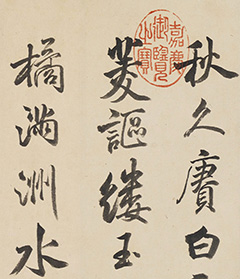 嘉慶御覽之寶
秋久賡白
菱謳縷玉
橘滿洲水